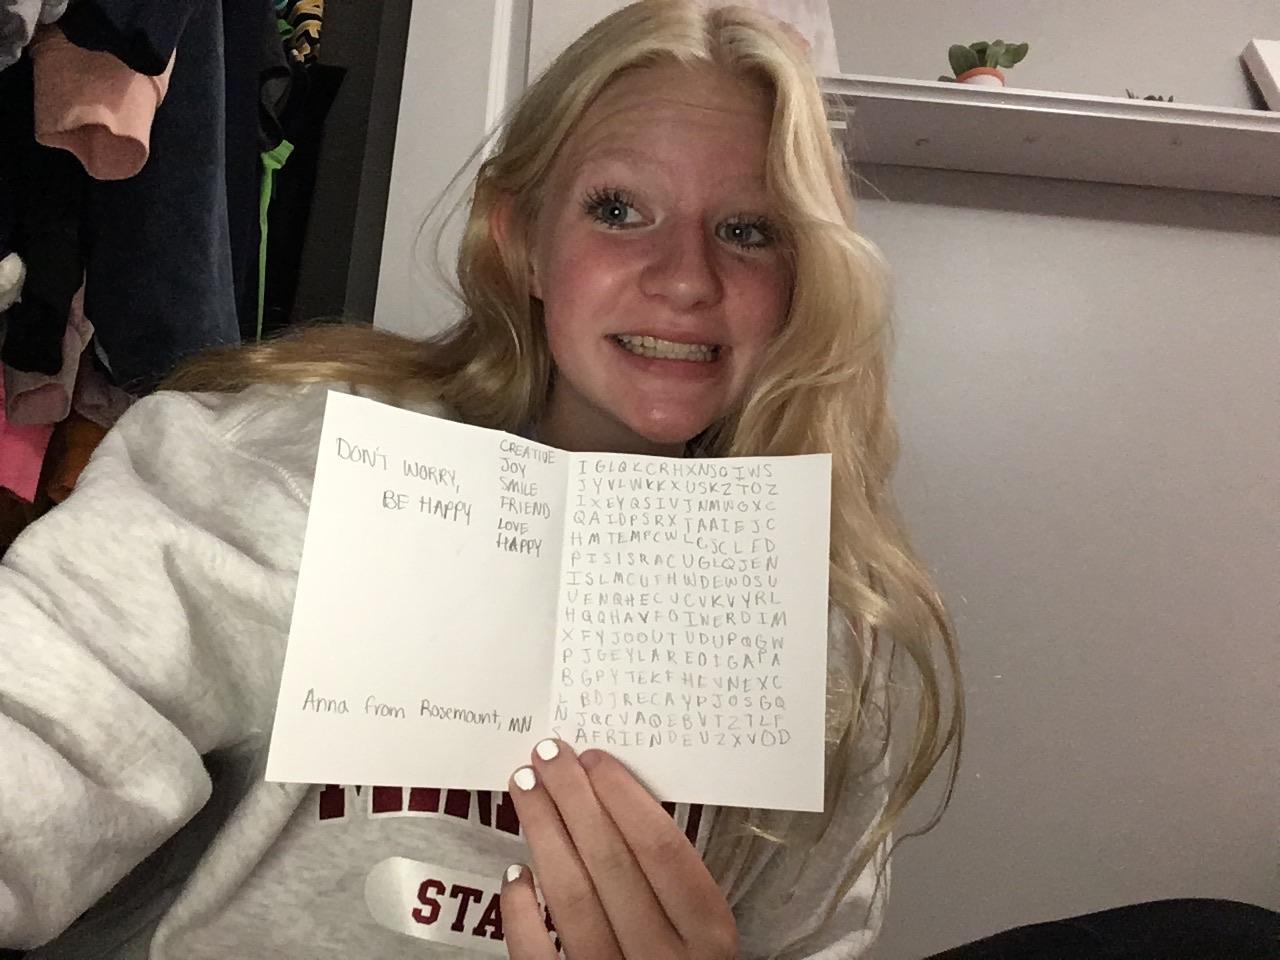 DON'T WORRY,
BE HAPPY
CREATIVE
JOY
SMILE
FRIEND
LOVE
HAPPY
Anna from Rosemount, MN
IGLQKCRHXNSOIWS
JYVLWKKXUSKZTOZ
IXEYQSIVJNMWOXC
QAIDPSRXTAAIEJC
HMTEMPCWLCJCLFD
PISISRACUGLQJEN
ISLMCUFHWDEWOSU
UENQHECUCVKVYRL
HQQHAVFOINERDIM
XFYJOOUTUDUPQGW
PJGEYLAREDIGAPA
BGPYTEKFHEVNEXC
LBDJRECAYPJOSGQ
NJQCVAOEBVTZTLF
SAFRIENDEUZXVOD
STA